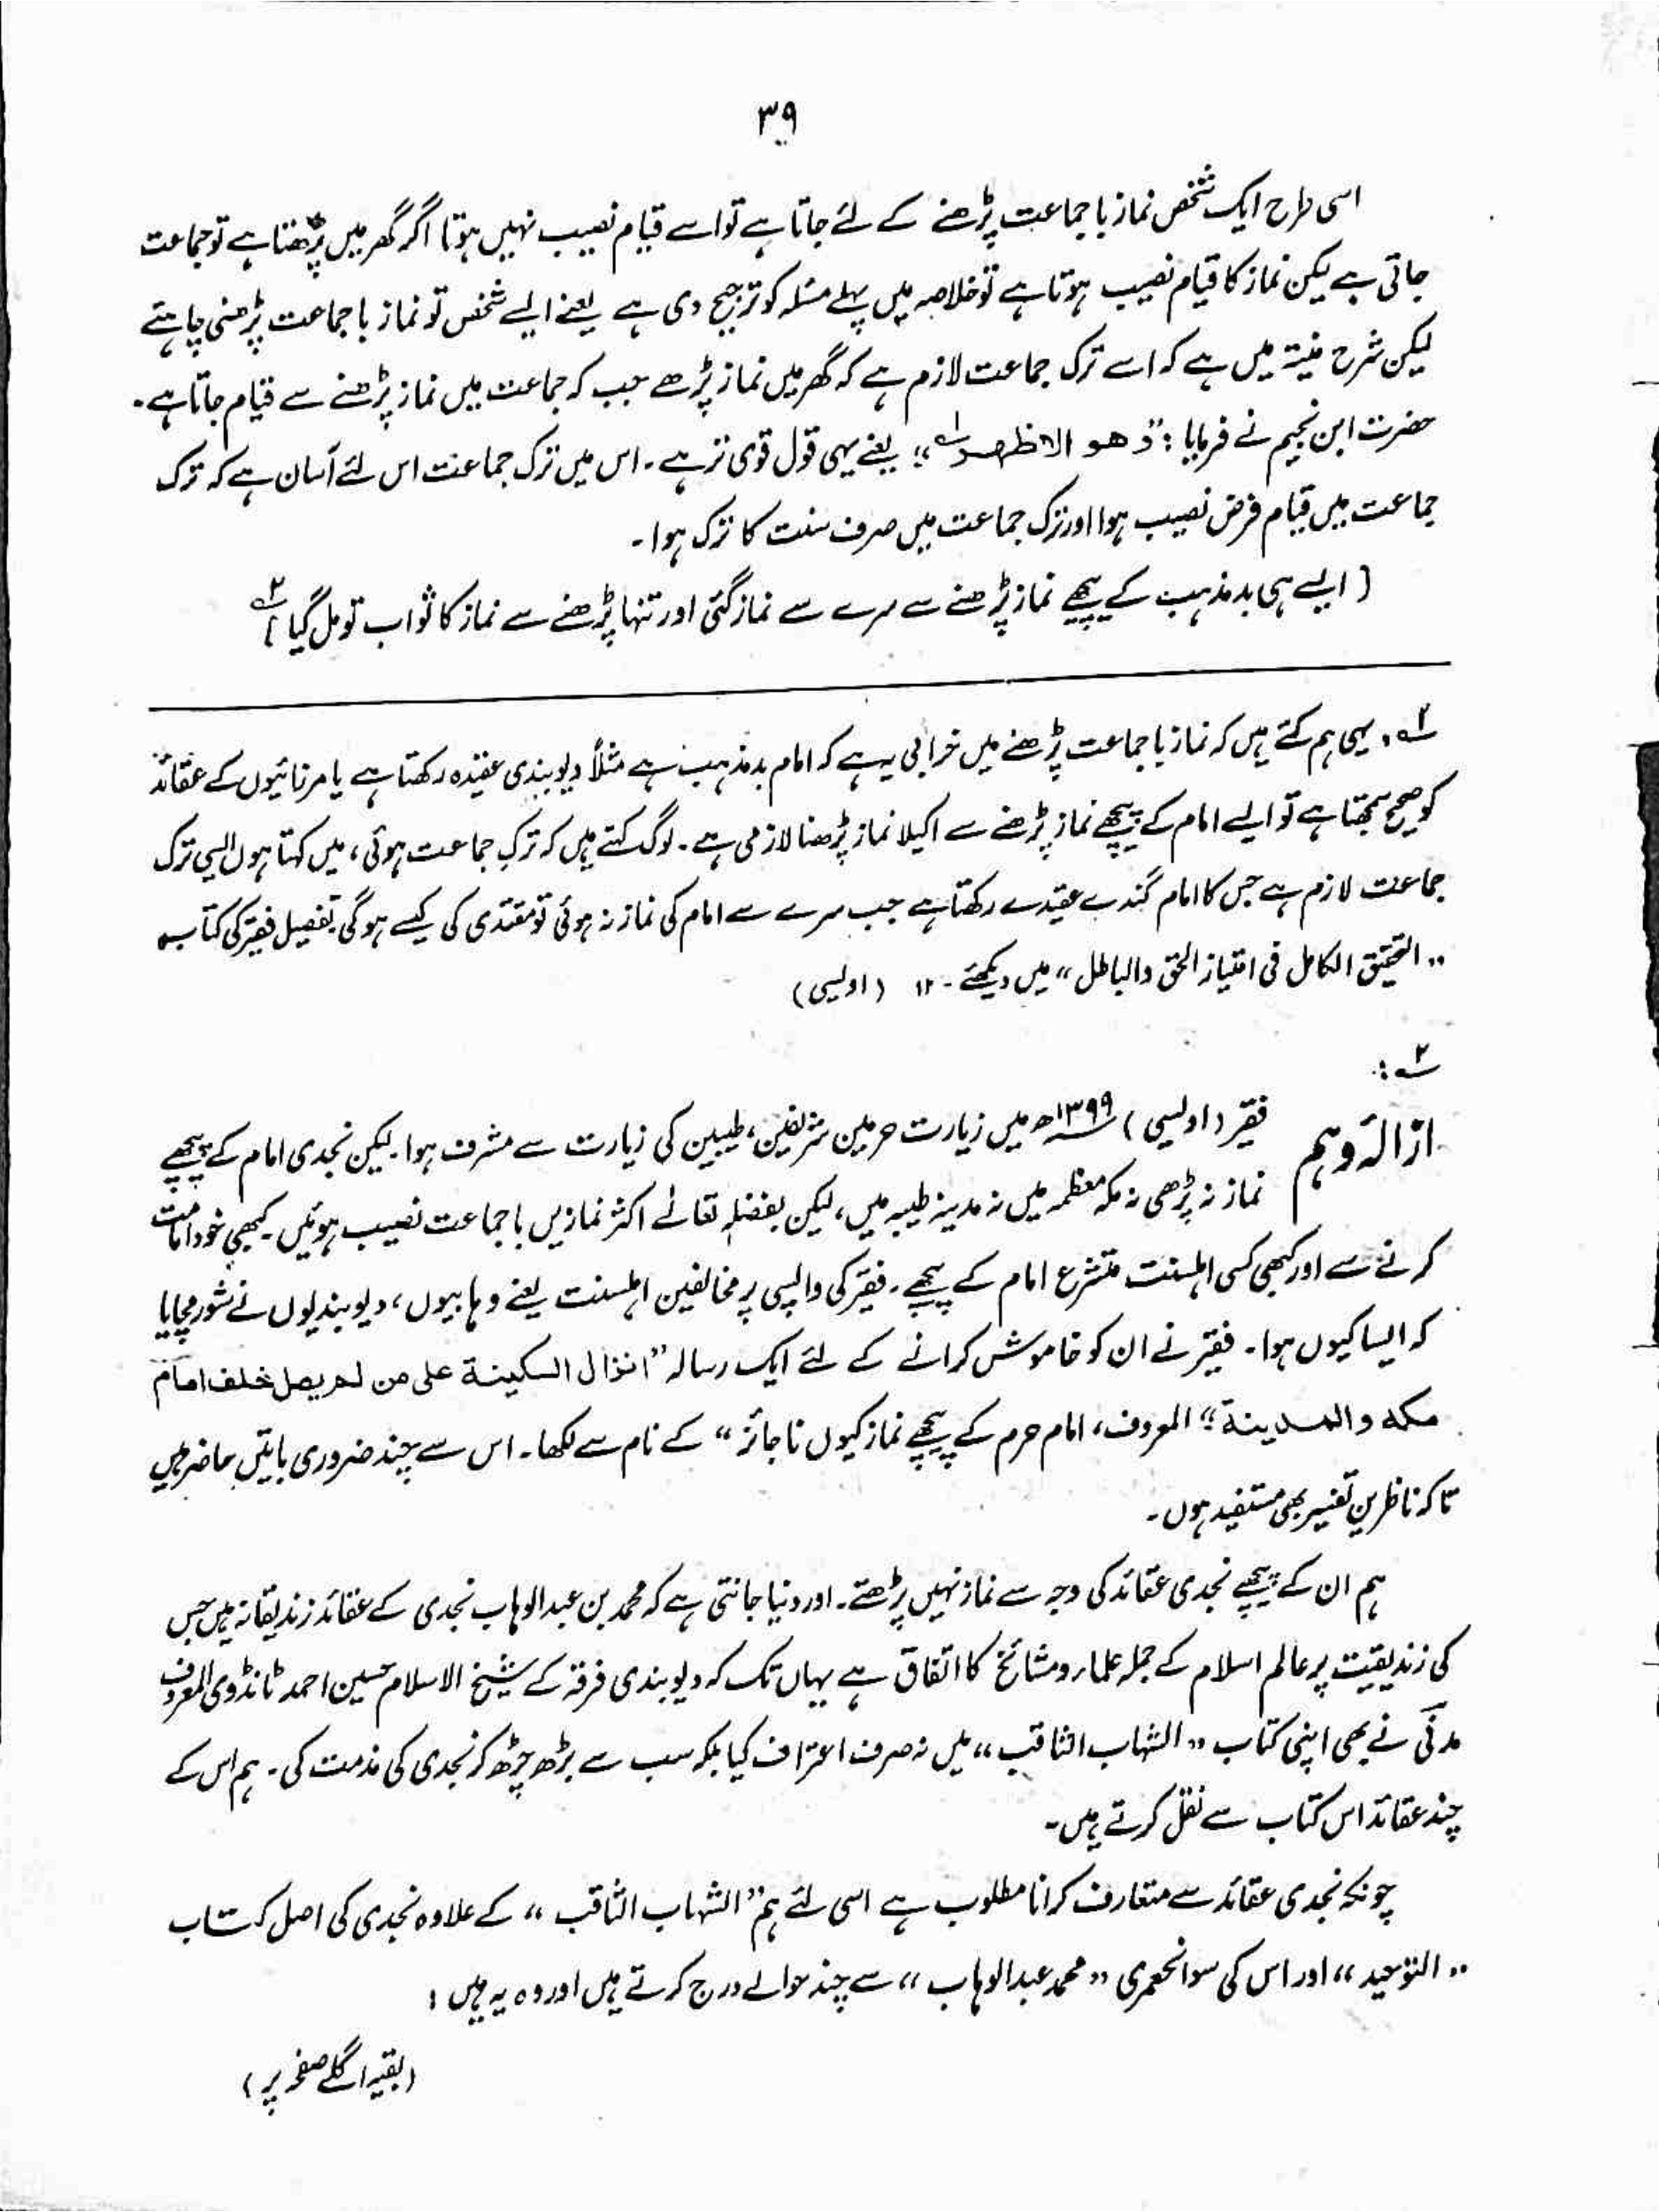 ۳۹
اسی طرح ایک شخص نماز با جماعت پڑھنے کے لئے جاتا ہے تو اسے قیام نصیب نہیں ہوتا اگر گھر میں پڑھتا ہے تو جماعت
جاتی ہے لیکن نماز کا قیام نصیب ہوتا ہے تو خلاصہ میں پہلے مسئلہ کو ترجیح دی ہے یعنے ایسے شخص تو نماز با جماعت پڑھنی چاہئے
لیکن شرح منیۃ میں ہے کہ اسے ترک جماعت لازم ہے کہ گھر میں نماز پڑھے جب کہ جماعت میں نماز پڑھنے سے قیام جاتا ہے۔
حضرت ابن نجیم نے فرمایا : "وھو الاظھر" ۱ یعنے یہی قول قوی تر ہے۔ اس میں ترک جماعت اس لئے آسان ہے کہ ترک
جماعت میں قیام فرض نصیب ہوا اور ترک جماعت میں صرف سنت کا ترک ہوا۔
[ ایسے ہی بدمذہب کے پیچھے نماز پڑھنے سے سرے سے نماز گئی اور تنہا پڑھنے سے نماز کا ثواب تو مل گیا ] ۲
۱ ۔ یہی ہم کہتے ہیں کہ نماز با جماعت پڑھنے میں خرابی یہ ہے کہ امام بدمذہب ہے مثلاً دیوبندی عقیدہ رکھتا ہے یا مرزائیوں کے عقائد
کو صحیح سمجھتا ہے تو ایسے امام کے پیچھے نماز پڑھنے سے اکیلا نماز پڑھنا لازمی ہے۔ لوگ کہتے ہیں کہ ترکِ جماعت ہوئی، میں کہتا ہوں ایسی ترک
جماعت لازم ہے جس کا امام گندے عقیدے رکھتا ہے جب سرے سے امام کی نماز نہ ہوئی تو مقتدی کی کیسے ہوگی تفصیل فقیر کی کتاب
"التحقیق الکامل فی امتیاز الحق والباطل" میں دیکھئے۔ ۱۲ (اویسی)
۲ :
ازالۂ وہم فقیر (اویسی) ۱۳۹۹ھ میں زیارت حرمین شریفین، طیبین کی زیارت سے مشرف ہوا۔ لیکن نجدی امام کے پیچھے
نماز نہ پڑھی نہ مکہ معظمہ میں نہ مدینہ طیبہ میں، لیکن بفضلہ تعالےٰ اکثر نمازیں با جماعت نصیب ہوئیں۔ کبھی خود امامت
کرنے سے اور کبھی کسی اہلسنت متشرع امام کے پیچھے۔ فقیر کی واپسی پر مخالفین اہلسنت یعنے وہابیوں، دیوبندیوں نے شور مچایا
کہ ایسا کیوں ہوا۔ فقیر نے ان کو خاموش کرانے کے لئے ایک رسالہ "انزال السکینة علی من لم یصل خلف امام
مکه والمدینة" المعروف، امام حرم کے پیچھے نماز کیوں ناجائز" کے نام سے لکھا۔ اس سے چند ضروری باتیں حاضر ہیں
تاکہ ناظرین تفسیر بھی مستفید ہوں۔
ہم ان کے پیچھے نجدی عقائد کی وجہ سے نماز نہیں پڑھتے۔ اور دنیا جانتی ہے کہ محمد بن عبدالوہاب نجدی کے عقائد زندیقانہ ہیں جس
کی زندیقیت پر عالم اسلام کے جملہ علماء و مشائخ کا اتفاق ہے یہاں تک کہ دیوبندی فرقہ کے شیخ الاسلام حسین احمد ٹانڈوی المعروف
مدنی نے بھی اپنی کتاب "الشہاب الثاقب" میں نہ صرف اعتراف کیا بلکہ سب سے بڑھ چڑھ کر نجدی کی مذمت کی۔ ہم اس کے
چند عقائد اس کتاب سے نقل کرتے ہیں۔
چونکہ نجدی عقائد سے متعارف کرانا مطلوب ہے اسی لئے ہم "الشہاب الثاقب" کے علاوہ نجدی کی اصل کتاب
"التوحید" اور اس کی سوانحعمری "محمد عبدالوہاب" سے چند حوالے درج کرتے ہیں اور وہ یہ ہیں :
(بقیہ اگلے صفحہ پر)